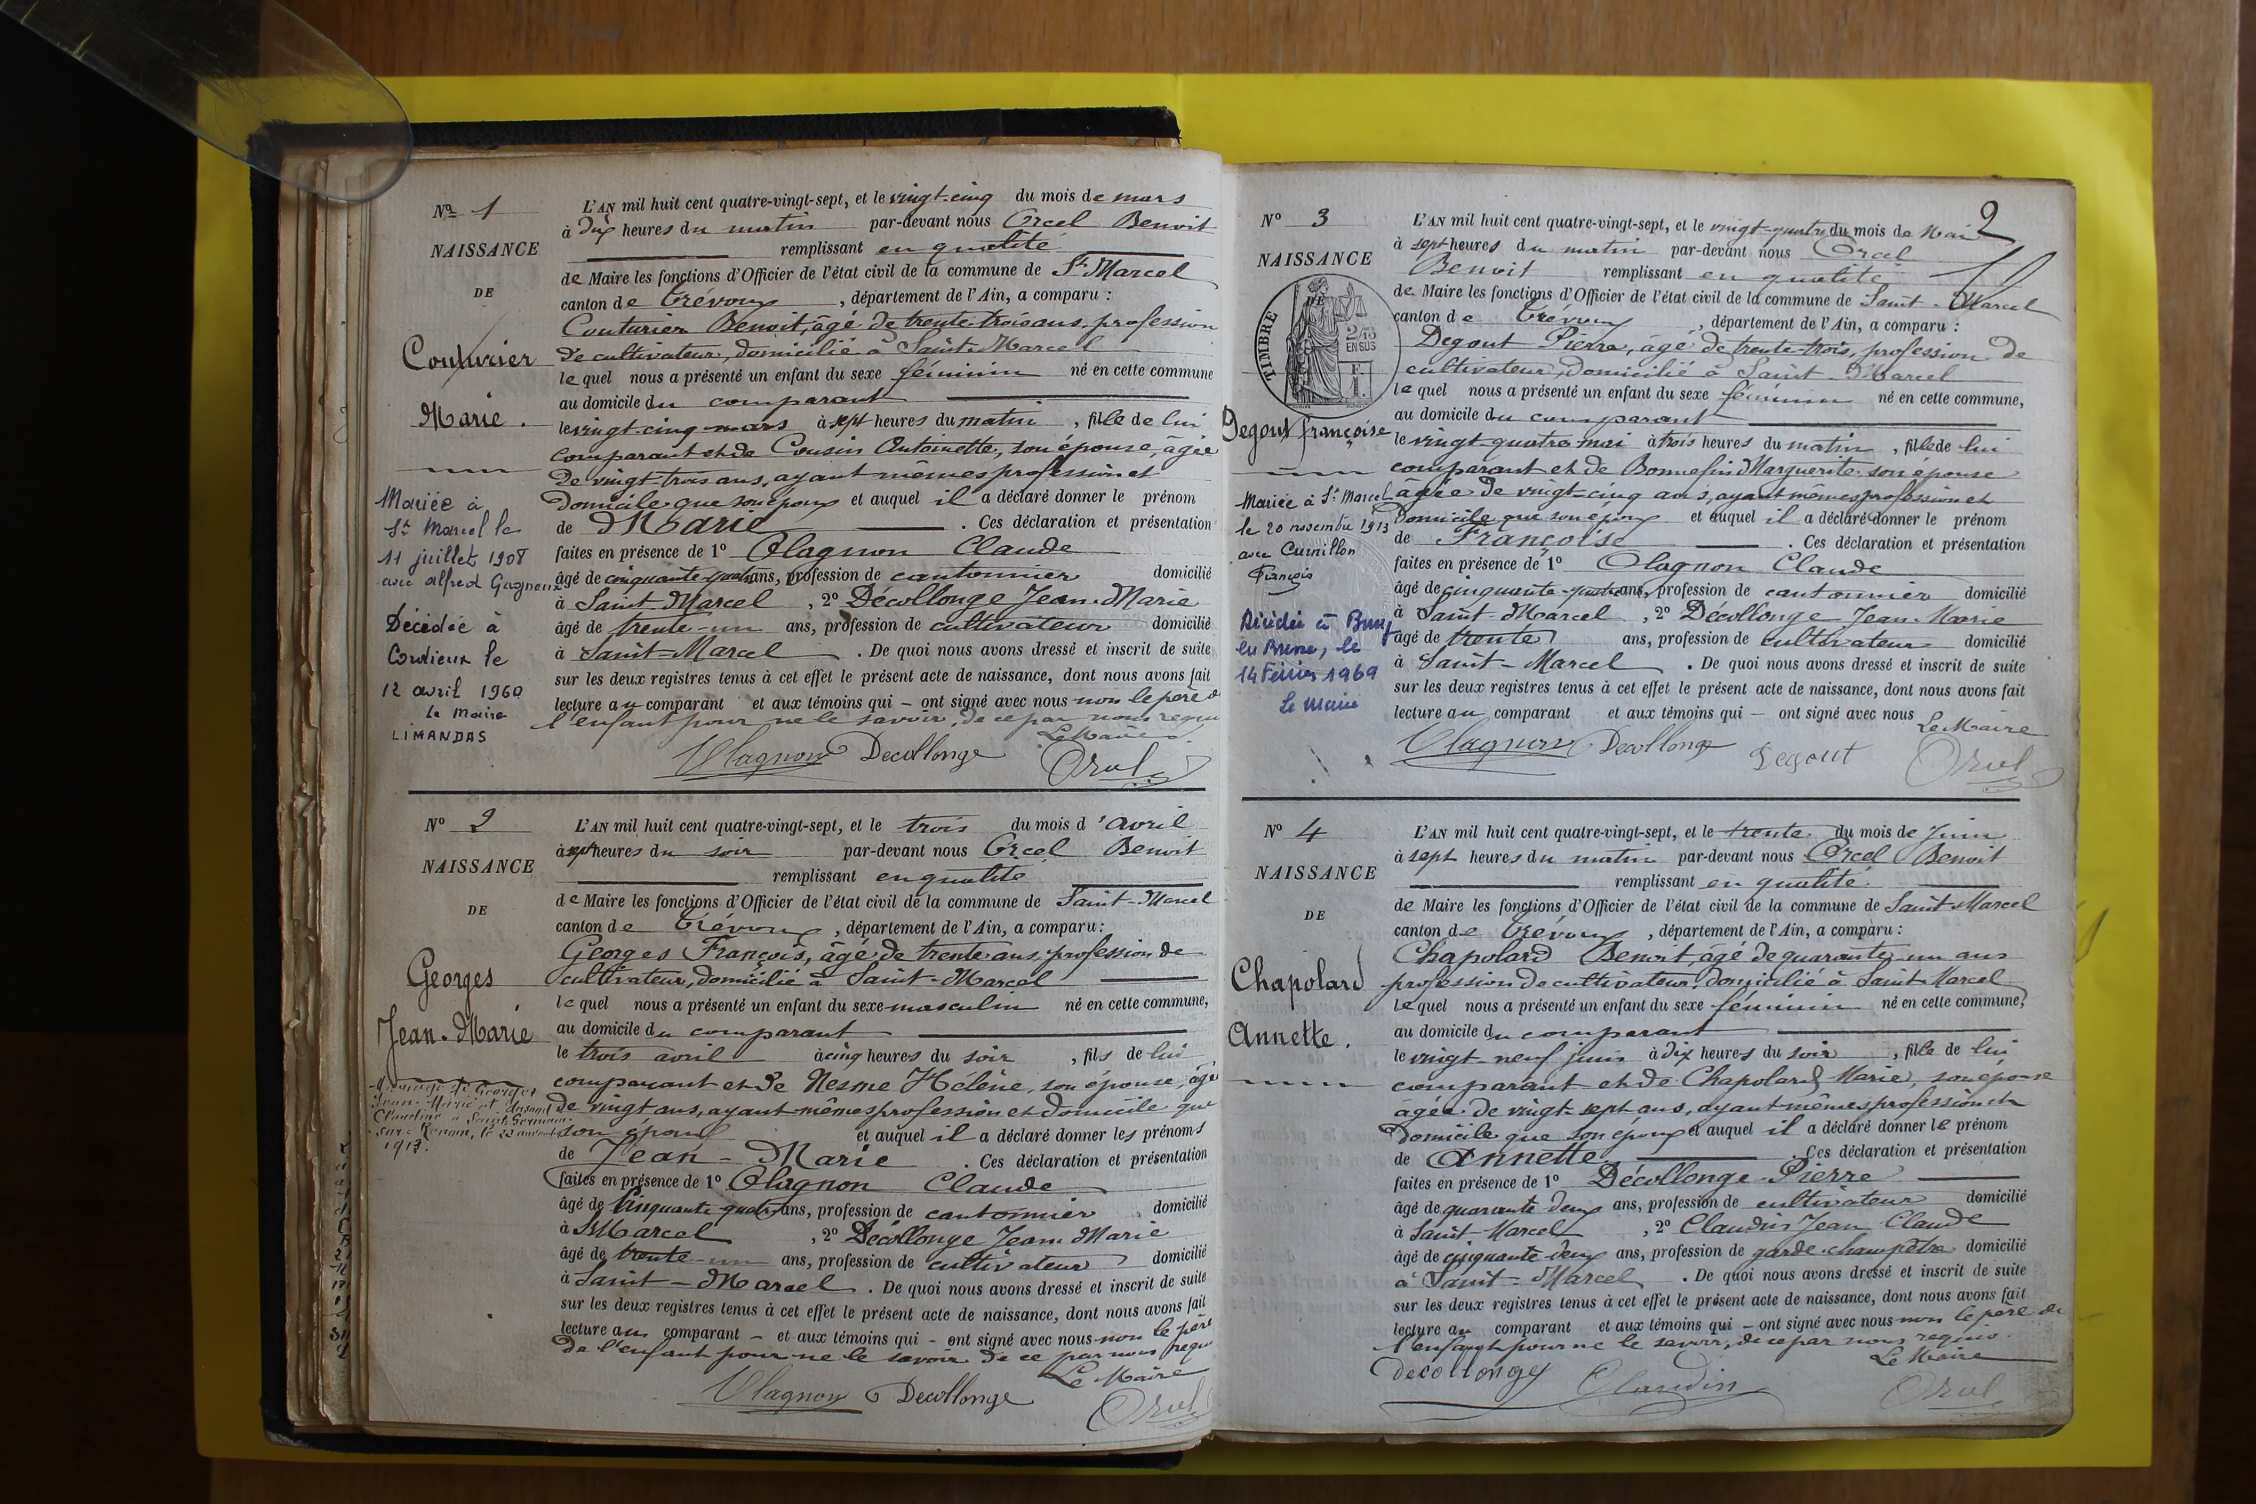 Nº 1
NAISSANCE
DE
Couturier
Marie.
Mariée à
St Marcel le
11 juillet 1908
avec Alfred Gagneux
Décédée à
Cordieux le
12 avril 1960
Le Maire
LIMANDAS
L'AN mil huit cent quatre-vingt-sept, et le vingt-cinq du mois de mars
à dix heures du matin par-devant nous Orcel Benoit
remplissant en qualité
de Maire les fonctions d'Officier de l'état civil de la commune de St Marcel
canton de Trévoux, département de l'Ain, a comparu :
Couturier Benoit, âgé de trente-trois ans, profession
de cultivateur, domicilié à Saint-Marcel
lequel nous a présenté un enfant du sexe féminin né en cette commune
au domicile du comparant
le vingt-cinq mars à sept heures du matin, fille de lui
comparant et de Cousin Antoinette, son épouse, âgée
de vingt-trois ans, ayant mêmes profession et
domicile que son époux et auquel il a déclaré donner le prénom
de Marie. Ces déclaration et présentation
faites en présence de 1º Olagnon Claude
âgé de cinquante-quatre ans, profession de cantonnier domicilié
à Saint Marcel, 2º Décollonge Jean-Marie
âgé de trente-un ans, profession de cultivateur domicilié
à Saint-Marcel. De quoi nous avons dressé et inscrit de suite
sur les deux registres tenus à cet effet le présent acte de naissance, dont nous avons fait
lecture au comparant et aux témoins qui – ont signé avec nous non le père de
l'enfant pour ne le savoir, de ce par nous requis
Le Maire
Olagnon Decollonge Orcel
Nº 2
NAISSANCE
DE
Georges
Jean-Marie
Mariage de Georges
Jean-Marie et
Claudine à Saint-Germain
sur-Renon, le 22
1913.
L'AN mil huit cent quatre-vingt-sept, et le trois du mois d'avril
à sept heures du soir par-devant nous Orcel Benoit
remplissant en qualité
de Maire les fonctions d'Officier de l'état civil de la commune de Saint-Marcel
canton de Trévoux, département de l'Ain, a comparu :
Georges François, âgé de trente ans, profession de
cultivateur, domicilié à Saint-Marcel
lequel nous a présenté un enfant du sexe masculin né en cette commune,
au domicile du comparant
le trois avril à cinq heures du soir, fils de lui
comparant et de Nesme Hélène, son épouse, âgée
de vingt ans, ayant mêmes profession et domicile que
son époux et auquel il a déclaré donner les prénoms
de Jean-Marie. Ces déclaration et présentation
faites en présence de 1º Olagnon Claude
âgé de cinquante-quatre ans, profession de cantonnier domicilié
à St Marcel, 2º Décollonge Jean Marie
âgé de trente-un ans, profession de cultivateur domicilié
à Saint-Marcel. De quoi nous avons dressé et inscrit de suite
sur les deux registres tenus à cet effet le présent acte de naissance, dont nous avons fait
lecture au comparant – et aux témoins qui – ont signé avec nous non le père
de l'enfant pour ne le savoir de ce par nous requis
Le Maire
Olagnon Decollonge Orcel
2
Nº 3
NAISSANCE
DE
TIMBRE
2/10
EN SUS
Degout Françoise
Mariée à St Marcel
le 20 novembre 1913
avec Curnillon
François
Décédée à Bourg
en Bresse, le
14 Février 1969
Le Maire
L'AN mil huit cent quatre-vingt-sept, et le vingt-quatre du mois de Mai
à sept heures du matin par-devant nous Orcel
Benoit remplissant en qualité
de Maire les fonctions d'Officier de l'état civil de la commune de Saint-Marcel
canton de Trévoux, département de l'Ain, a comparu :
Degout Pierre, âgé de trente-trois, profession de
cultivateur, domicilié à Saint-Marcel
lequel nous a présenté un enfant du sexe féminin né en cette commune,
au domicile du comparant
le vingt-quatre mai à trois heures du matin, fille de lui
comparant et de Bonnefin Marguerite son épouse
âgée de vingt-cinq ans, ayant mêmes profession et
domicile que son époux et auquel il a déclaré donner le prénom
de Françoise. Ces déclaration et présentation
faites en présence de 1º Olagnon Claude
âgé de cinquante-quatre ans, profession de cantonnier domicilié
à Saint-Marcel, 2º Décollonge Jean-Marie
âgé de trente ans, profession de cultivateur domicilié
à Saint-Marcel. De quoi nous avons dressé et inscrit de suite
sur les deux registres tenus à cet effet le présent acte de naissance, dont nous avons fait
lecture au comparant et aux témoins qui – ont signé avec nous
Le Maire
Olagnon Decollonge Degout Orcel
Nº 4
NAISSANCE
DE
Chapolard
Annette.
L'AN mil huit cent quatre-vingt-sept, et le trente du mois de Juin
à sept heures du matin par-devant nous Orcel Benoit
remplissant en qualité
de Maire les fonctions d'Officier de l'état civil de la commune de Saint-Marcel
canton de Trévoux, département de l'Ain, a comparu :
Chapolard Benoit, âgé de quarante-un ans
profession de cultivateur, domicilié à Saint-Marcel
lequel nous a présenté un enfant du sexe féminin né en cette commune,
au domicile du comparant
le vingt-neuf juin à dix heures du soir, fille de lui
comparant et de Chapolard Marie, son épouse
âgée de vingt-sept ans, ayant mêmes profession et
domicile que son époux et auquel il a déclaré donner le prénom
de Annette. Ces déclaration et présentation
faites en présence de 1º Décollonge Pierre
âgé de quarante-deux ans, profession de cultivateur domicilié
à Saint-Marcel, 2º Claudin Jean Claude
âgé de cinquante-deux ans, profession de garde-champêtre domicilié
à Saint-Marcel. De quoi nous avons dressé et inscrit de suite
sur les deux registres tenus à cet effet le présent acte de naissance, dont nous avons fait
lecture au comparant et aux témoins qui – ont signé avec nous non le père de
l'enfant pour ne le savoir, de ce par nous requis.
Le Maire
Decollonge Claudin Orcel